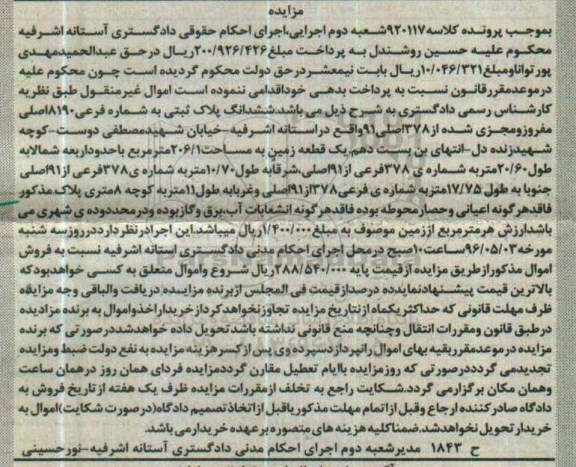 مزایده
بموجب پرونده کلاسه۹۲۰۱۱۷شعبه دوم اجرایی،اجرای احکام حقوقی دادگستری آستانه اشرفیه
محکوم علیه حسین روشندل به پرداخت مبلغ۲۰۰/۹۲۶/۴۲۶ریال درحق عبدالحمیدمهدی
پور تواناومبلغ۱۰/۰۴۶/۳۲۱ریال بابت نیمعشردرحق دولت محکوم گردیده است چون محکوم علیه
درموعدمقررقانون نسبت به پرداخت بدهی خوداقدامی ننموده است اموال غیرمنقول طبق نظریه
کارشناس رسمی دادگستری به شرح ذیل می باشد:ششدانگ پلاک ثبتی به شماره فرعی۸۱۹۰اصلی
مفروزومجزی شده از۳۷۸اصلی۹۱واقع دراستانه اشرفیه-خیابان شهیدمصطفی دوست-کوچه
شهیدزنده دل-انتهای بن بست دهم،یک قطعه زمین به مساحت۲۰۶/۱مترمربع باحدوداربعه شمالابه
طول۲۰/۶۰متربه شماره ی ۳۷۸فرعی از۹۱اصلی،شرقابه طول۱۰/۷۰متربه شماره ی۳۷۸فرعی از۹۱اصلی
جنوبا به طول ۱۷/۷۵متربه شماره ی فرعی۳۷۸از۹۱اصلی وغربابه طول۱۱متربه کوچه ۸متری پلاک مذکور
فاقدهرگونه اعیانی وحصارمحوطه بوده فاقدهرگونه انشعابات آب،برق وگازبوده ودرمحدوده ی شهری می
باشدارزش هرمترمربع اززمین موصوف به مبلغ۱/۴۰۰/۰۰۰ریال میباشد.این اجرادرنظردارددرروزسه شنبه
مورخه۹۶/۰۵/۰۳ساعت۱۰صبح درمحل اجرای احکام مدنی دادگستری استانه اشرفیه نسبت به فروش
اموال مذکورازطریق مزایده ازقیمت پایه ۲۸۸/۵۴۰/۰۰۰ریال شروع واموال متعلق به کسی خواهدبودکه
بالاترین قیمت پیشنهادنمایدده درصدازقیمت فی المجلس ازبرنده مزایده دریافت والباقی وجه مزایده
ظرف مهلت قانونی که حداکثریکماه ازتاریخ مزایده تجاوزنخواهدکردازخریداراخذواموال به برنده مزایده
درطبق قانون ومقررات انتقال وچنانچه منع قانونی نداشته باشدتحویل داده خواهدشددرصورتی که برنده
مزایده درموعدمقرربقیه بهای اموال رانپردازدسپرده وی پس ازکسرهزینه مزایده به نفع دولت ضبط ومزایده
تجدیدمی گردددرصورتی که روزمزایده باایام تعطیل مقارن گرددمزایده فردای همان روز درهمان ساعت
وهمان مکان برگزارمی گردد.شکایت راجع به تخلف ازمقررات مزایده ظرف یک هفته ازتاریخ فروش به
دادگاه صادرکننده ارجاع وقبل ازاتمام مهلت مذکوریاقبل ازاتخاذتصمیم دادگاه(درصورت شکایت)اموال به
خریدارتحویل نخواهدشد.ضمناکلیه هزینه های متصوره برعهده خریدارمی باشد.
ح ۱۸۴۳ مدیرشعبه دوم اجرای احکام مدنی دادگستری آستانه اشرفیه-نورحسینی